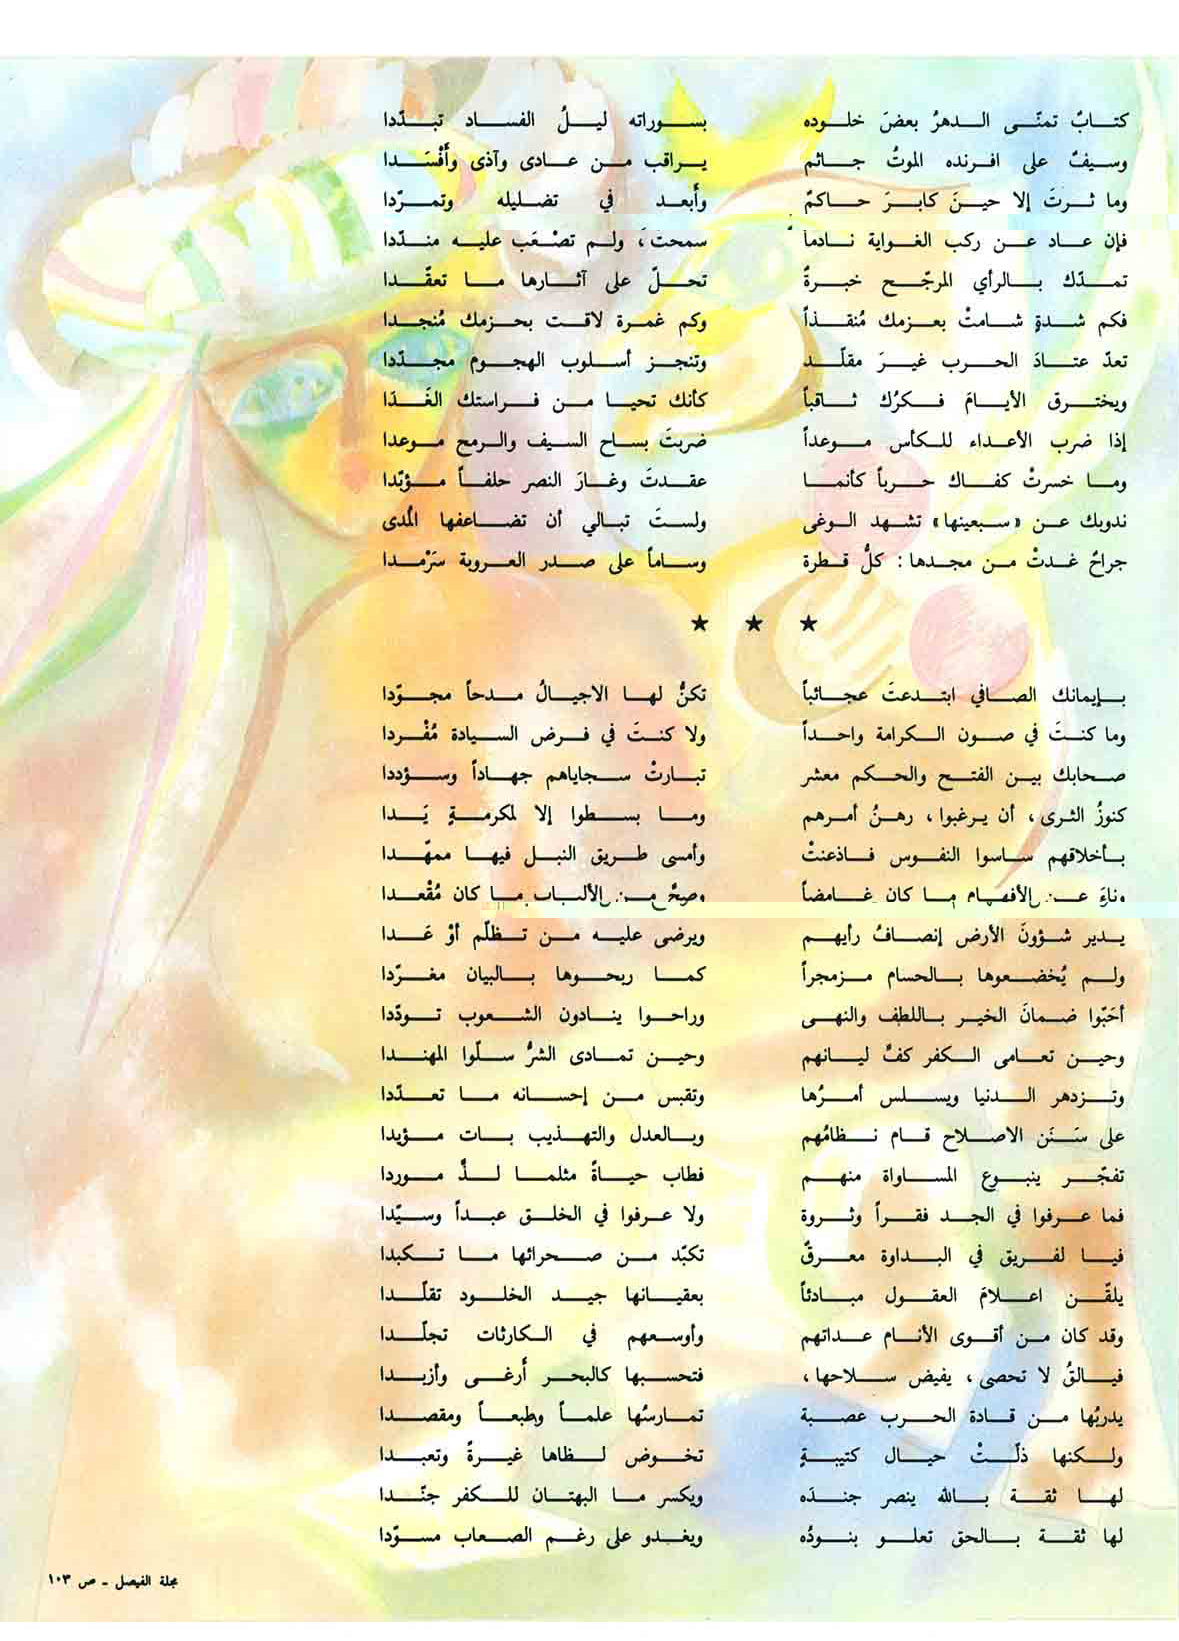 كتابٌ تمنّى الدهرُ بعضَ خلوده بسوراته ليلُ الفساد تبدّدا
وسيفٌ على افرنده الموتُ جاثم يراقب من عادى وآذى وأَفْسَدا
وما ثرتَ إلا حينَ كابرَ حاكمٌ وأَبعد في تضليله وتمرّدا
فإن عاد عن ركب الغواية نادماً سمحتَ، ولم تصْعَب عليه مندّدا
تمدّك بالرأي المرجّح خبرةٌ تحلّ على آثارها ما تعقّدا
فكم شدةٍ شامتْ بعزمك مُنقذاً وكم غمرة لاقت بحزمك مُنجدا
تعدّ عتادَ الحرب غيرَ مقلّد وتنجز أسلوب الهجوم مجدّدا
ويخترق الأيامَ فكرُك ثاقباً كأنك تحيا من فراستك الغَدَا
إذا ضرب الأعداء للكأس موعداً ضربتَ بساح السيف والرمح موعدا
وما خسرتْ كفاك حرباً كأنما عقدتَ وغارَ النصر حلفاً مؤبّدا
ندوبك عن «سبعينها» تشهد الوغى ولستَ تبالي أن تضاعفها المُدى
جراحٌ غدتْ من مجدها: كلُّ قطرة وساماً على صدر العروبة سَرْمدا
★ ★ ★
بإيمانك الصافي ابتدعتَ عجائباً تكنُّ لها الاجيالُ مدحاً مجوّدا
وما كنتَ في صون الكرامة واحداً ولا كنتَ في فرض السيادة مُفْردا
صحابك بين الفتح والحكم معشر تبارتْ سجاياهم جهاداً وسؤددا
كنوزُ الثرى، أن يرغبوا، رهنُ أمرهم وما بسطوا إلا لمكرمةٍ يَدا
بأخلاقهم ساسوا النفوس فاذعنتْ وأمسى طريق النبل فيها ممهّدا
وناءَ عن الأفهام ما كان غامضاً وصحَّ من الألباب ما كان مُقْعدا
يدير شؤونَ الأرض إنصافُ رأيهم ويرضى عليه من تظلّم أوْ عَدا
ولم يُخضعوها بالحسام مزمجراً كما ربحوها بالبيان مغرّدا
أحَبّوا ضمانَ الخير باللطف والنهى وراحوا ينادون الشعوب تودّدا
وحين تعامى الكفر كفَّ ليانهم وحين تمادى الشرُّ سلّوا المهندا
وتزدهر الدنيا ويسلس أمرُها وتقبس من إحسانه ما تعدّدا
على سَنَن الاصلاح قام نظامُهم وبالعدل والتهذيب بات مؤيدا
تفجّر ينبوع المساواة منهم فطاب حياةً مثلما لذَّ موردا
فما عرفوا في الجد فقراً وثروة ولا عرفوا في الخلق عبداً وسيّدا
فيا لفريق في البداوة معرقٌ تكبّد من صحرائها ما تكبدا
يلقّن اعلامَ العقول مبادئاً بعقيانها جيد الخلود تقلّدا
وقد كان من أقوى الأنام عداتهم وأوسعهم في الكارثات تجلّدا
فيالقُ لا تحصى، يفيض سلاحها، فتحسبها كالبحر أرغى وأزبدا
يدربُها من قادة الحرب عصبة تمارسُها علماً وطبعاً ومقصدا
ولكنها ذلّتْ حيال كتيبةٍ تخوض لظاها غيرةً وتعبدا
لها ثقة بالله ينصر جندَه ويكسر ما البهتان للكفر جنّدا
لها ثقة بالحق تعلو بنودُه ويغدو على رغم الصعاب مسوّدا
مجلة الفيصل - ص ١٠٣